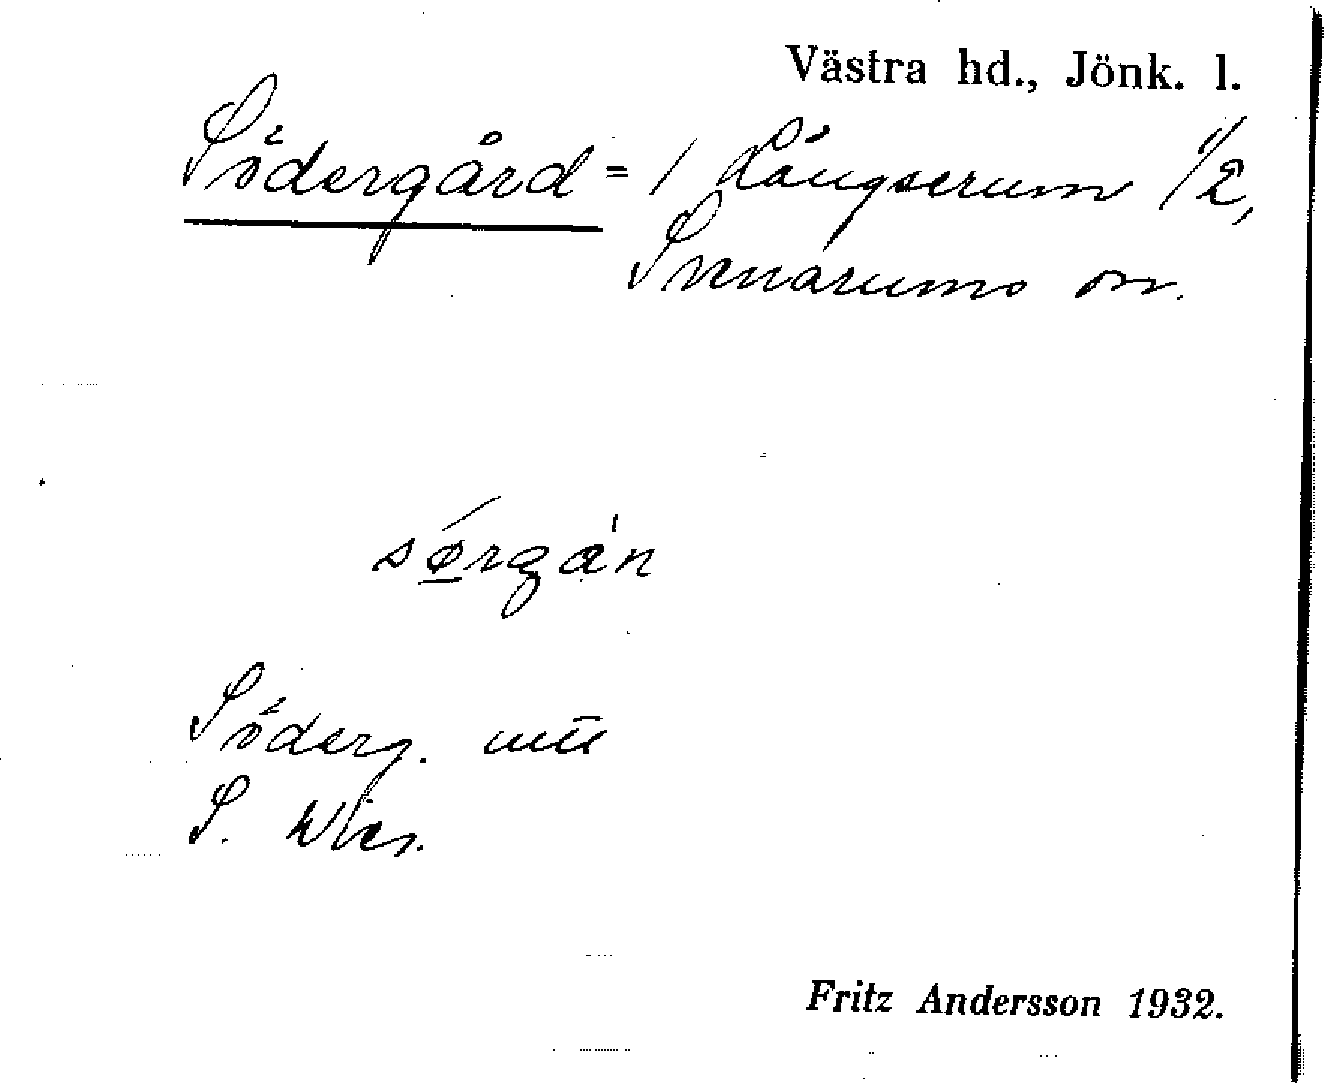 Västra hd., Jönk. l.
Södergård = 1 Långserum 1/2,
Svenarums sn.
sørgån
Söderg. mtl
S.
Fritz Andersson 1932.